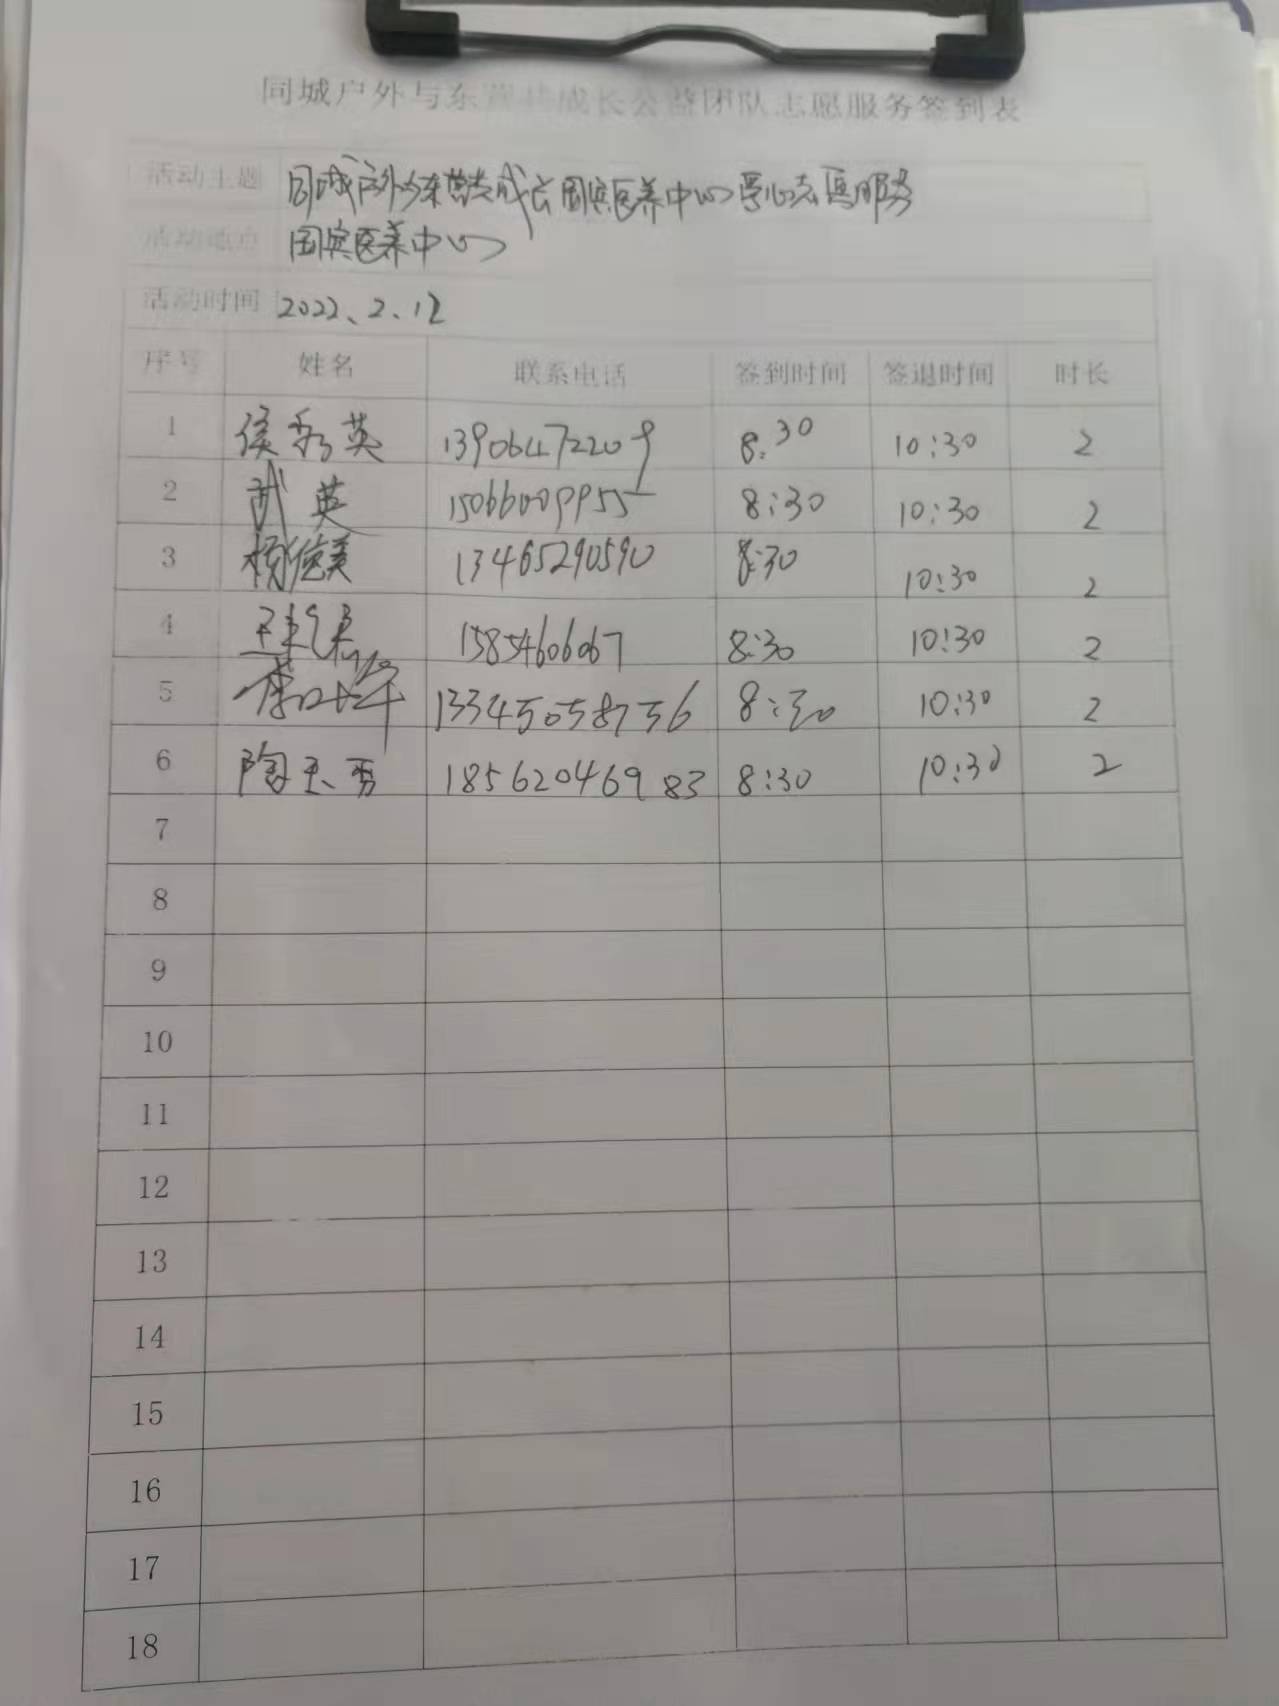 同城户外与东营共成长公益团队志愿服务签到表
活动主题 同城户外与东营共成长国宾医养中心爱心志愿服务
活动地点 国宾医养中心
活动时间 2022、2.12
序号 姓名 联系电话 签到时间 签退时间 时长
1 侯秀英 13906472209 8:30 10:30 2
2 武英 15066009955 8:30 10:30 2
3 杨德美 13465290590 8:30 10:30 2
4 15854606067 8:30 10:30 2
5 13345058756 8:30 10:30 2
6 陶玉勇 18562046983 8:30 10:30 2
7
8
9
10
11
12
13
14
15
16
17
18